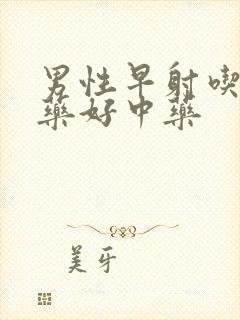 男性早射喫
藥好中藥
美牙